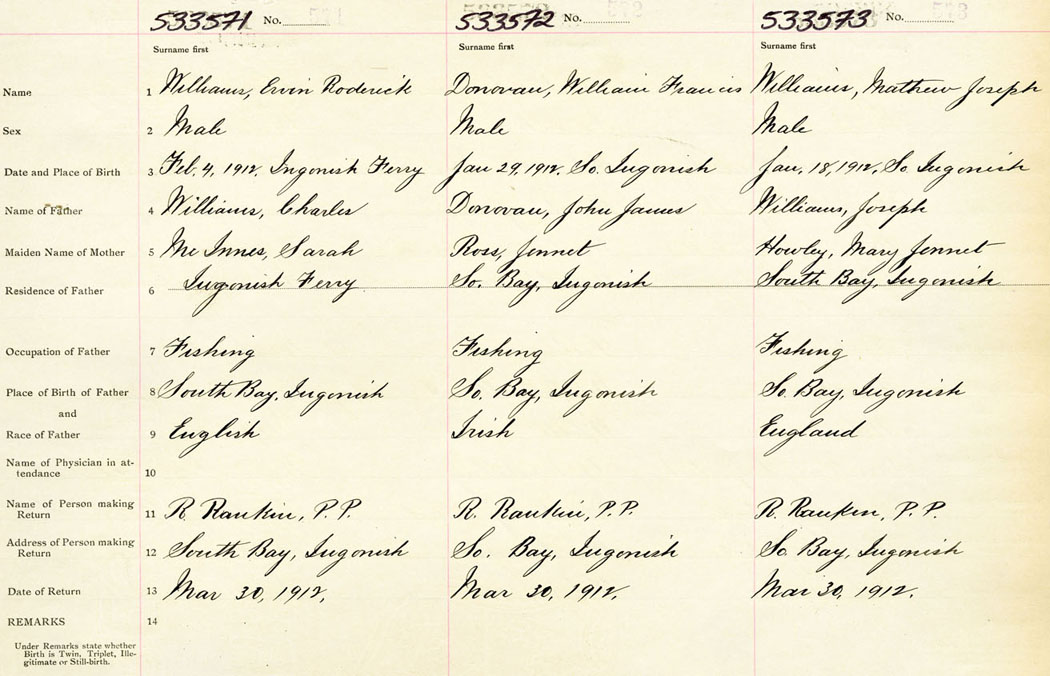 533571 No. 533572 No. 533573 No.
Surname first Surname first Surname first
Name 1 Williams, Ervin Roderick Donovan, William Francis Williams, Mathew Joseph
Sex 2 Male Male Male
Date and Place of Birth 3 Feb. 4, 1912. Ingonish Ferry Jan 29, 1912. So. Ingonish Jan. 18, 1912, So Ingonish
Name of Father 4 Williams, Charles Donovan, John James Williams, Joseph
Maiden Name of Mother 5 Mc Innes, Sarah Ross, Jennet Howley, Mary Jennet
Residence of Father 6 Ingonish Ferry So. Bay, Ingonish South Bay, Ingonish
Occupation of Father 7 Fishing Fishing Fishing
Place of Birth of Father 8 South Bay, Ingonish So. Bay, Ingonish So. Bay, Ingonish
and
Race of Father 9 English Irish England
Name of Physician in at-
tendance 10
Name of Person making
Return 11 R. Rankin, P.P. R. Rankin, P.P. R. Rankin, P.P.
Address of Person making
Return 12 South Bay, Ingonish So. Bay, Ingonish So. Bay, Ingonish
Date of Return 13 Mar 30, 1912, Mar 30, 1912, Mar 30, 1912.
REMARKS 14
Under Remarks state whether
Birth is Twin, Triplet, Ille-
gitimate or Still-birth.